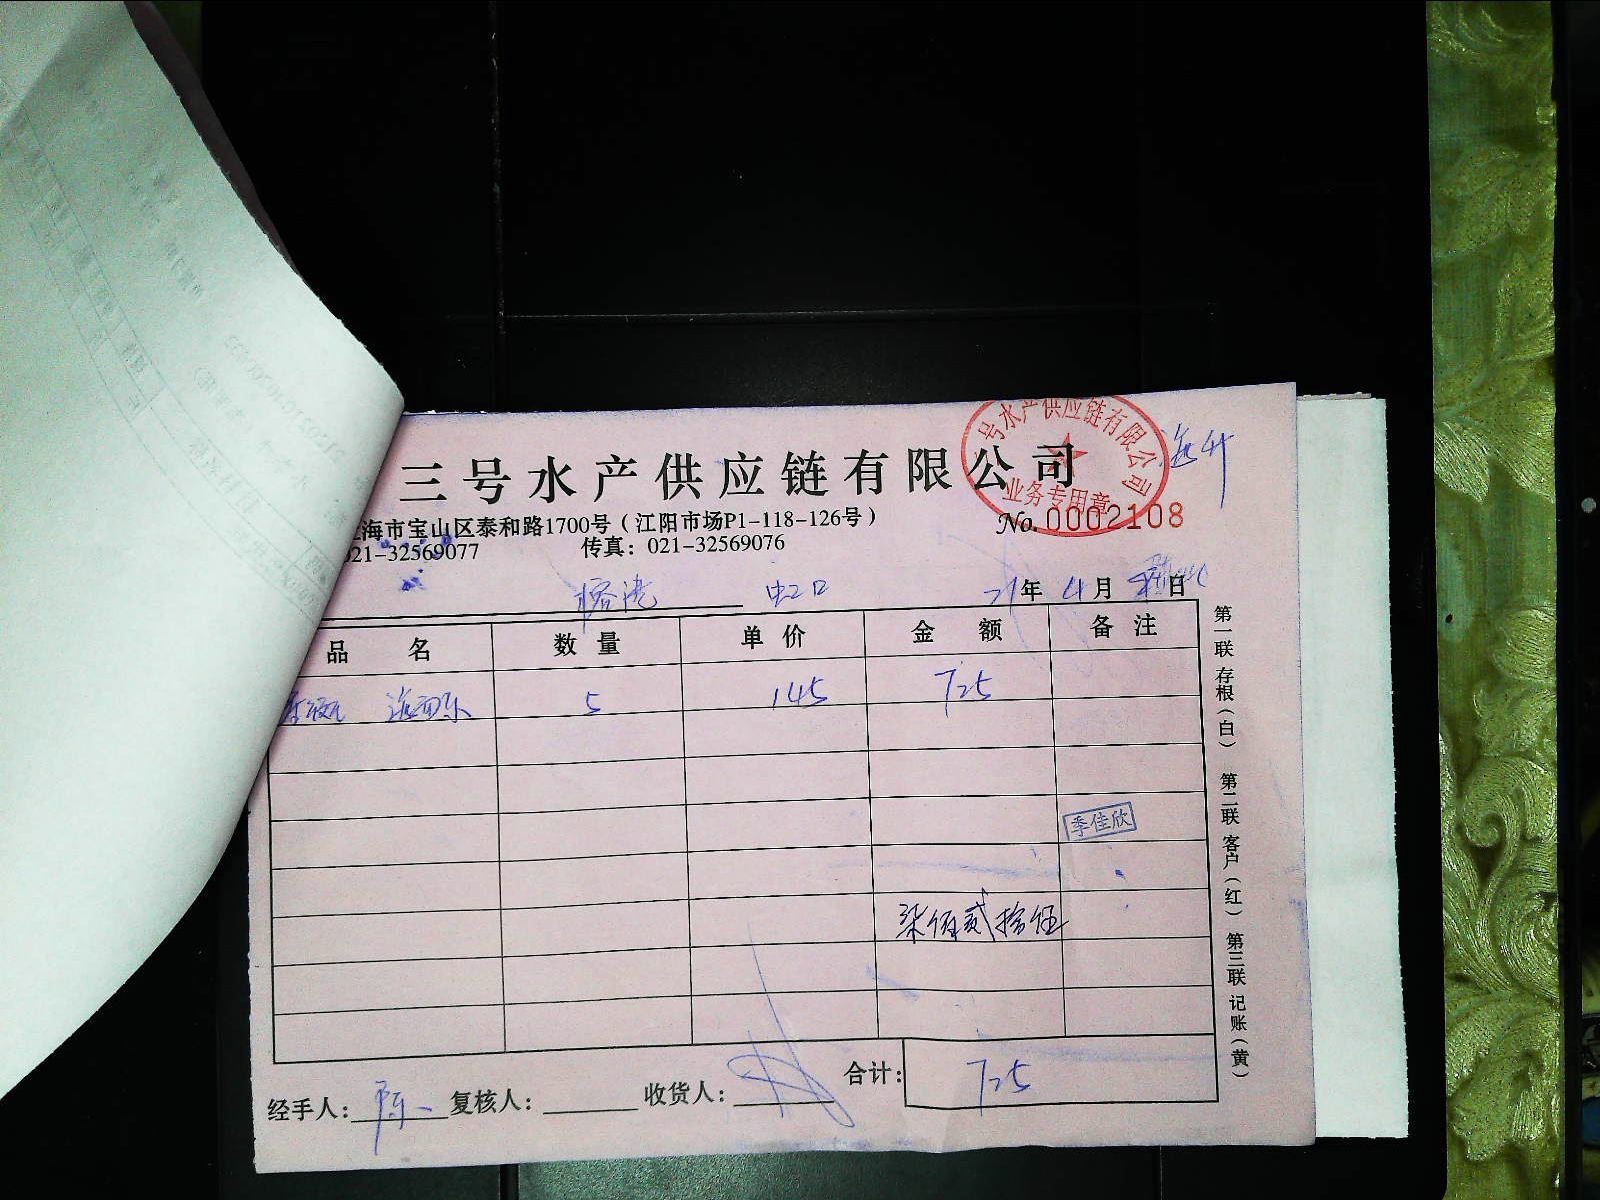 三号水产供应链有限公司
号水产供应链有限公司
业务专用章
No. 0002108
上海市宝山区泰和路1700号（江阳市场P1-118-126号）
021-32569077 传真：021-32569076
虹口 21年 4月 日
品 名 数 量 单 价 金 额 备 注
5 145 725
季佳欣
柒佰贰拾伍
合计： 725
经手人： 陈 复核人： 收货人：
第一联 存根（白） 第二联 客户（红） 第三联 记账（黄）